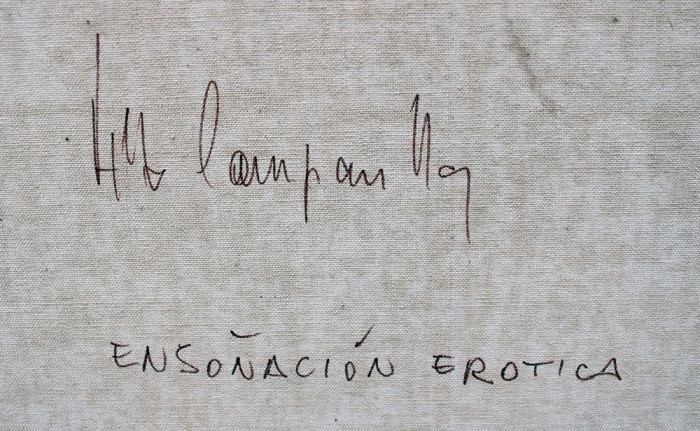 Campanilla
ENSOÑACIÓN EROTICA